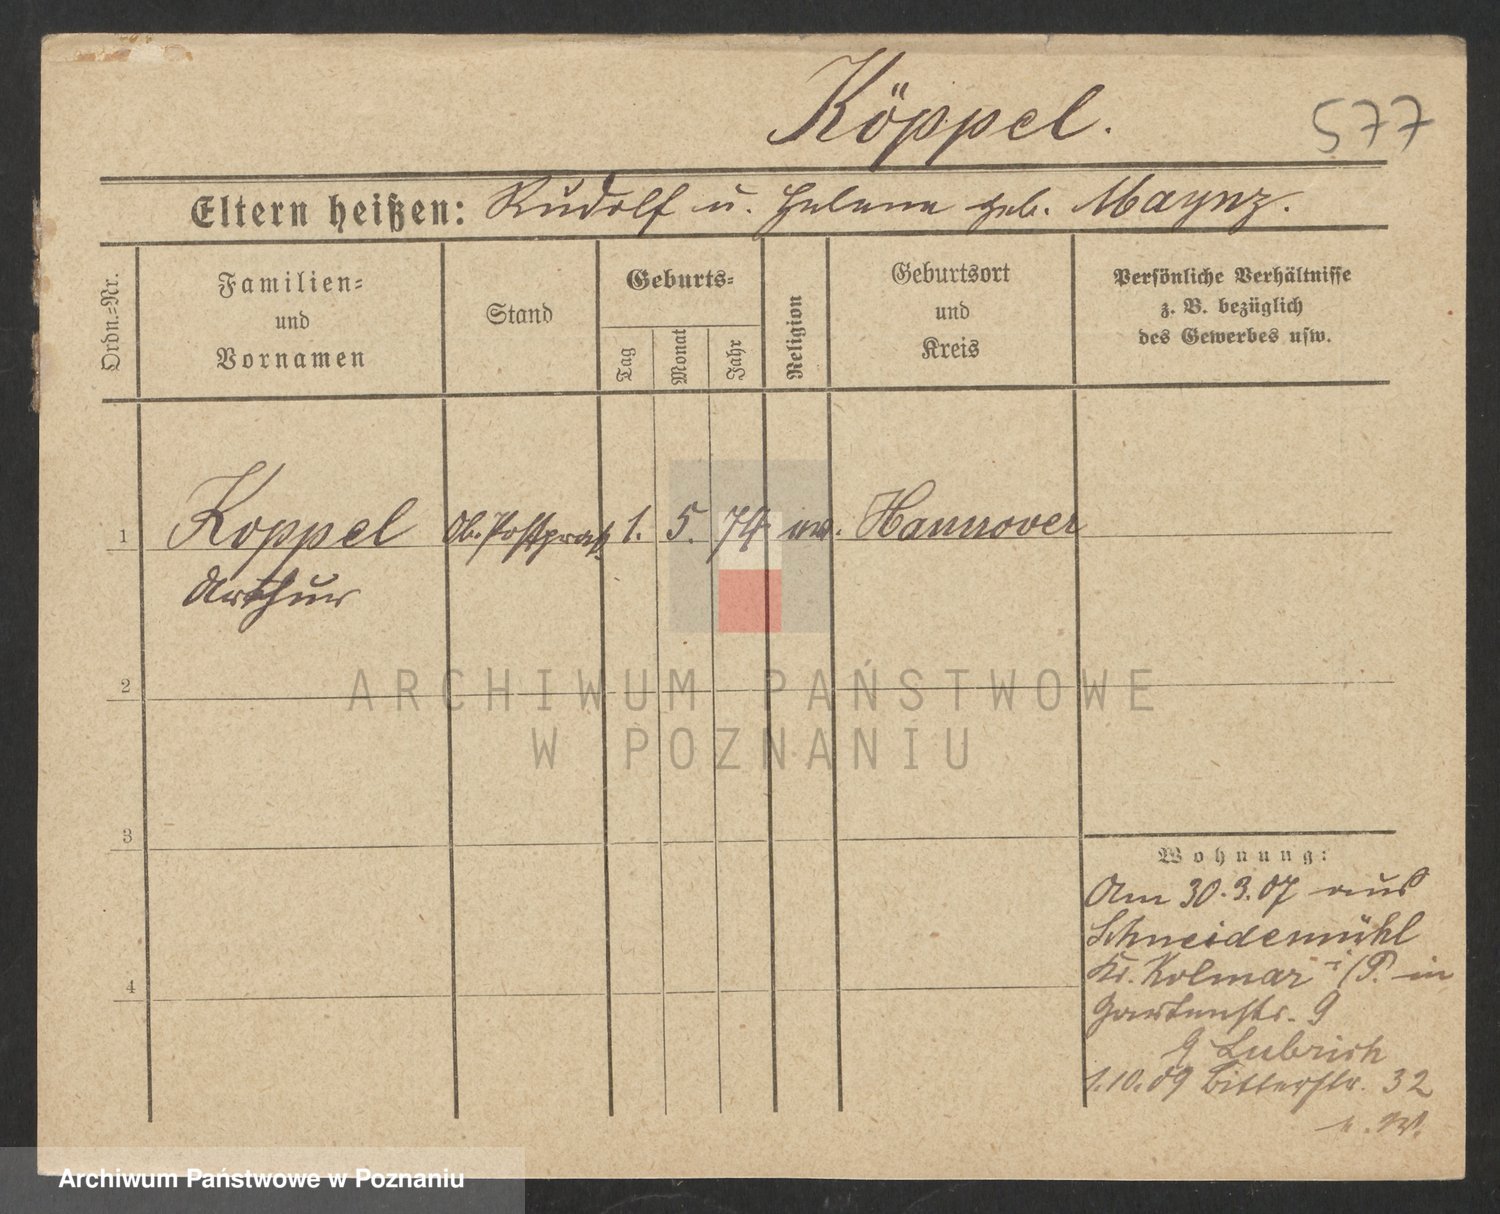 Köppel.
577
Eltern heißen: Rudolf u. Helene geb. Maynz.
Ordn.-Nr.
Familien-
und
Vornamen
Stand
Geburts-
Tag
Monat
Jahr
Religion
Geburtsort
und
Kreis
Persönliche Verhältnisse
z. B. bezüglich
des Gewerbes usw.
1 Koppel Ob. Postprakt. 1. 5. 74. ev. Hannover
Arthur
2
ARCHIWUM PAŃSTWOWE
W POZNANIU
3
Wohnung:
Am 30.3.07 aus
Schneidemühl
Kr. Kolmar i/P. in
Gartenstr. 9
Lubrich
1.10.09 Bitterstr. 32
4
Archiwum Państwowe w Poznaniu